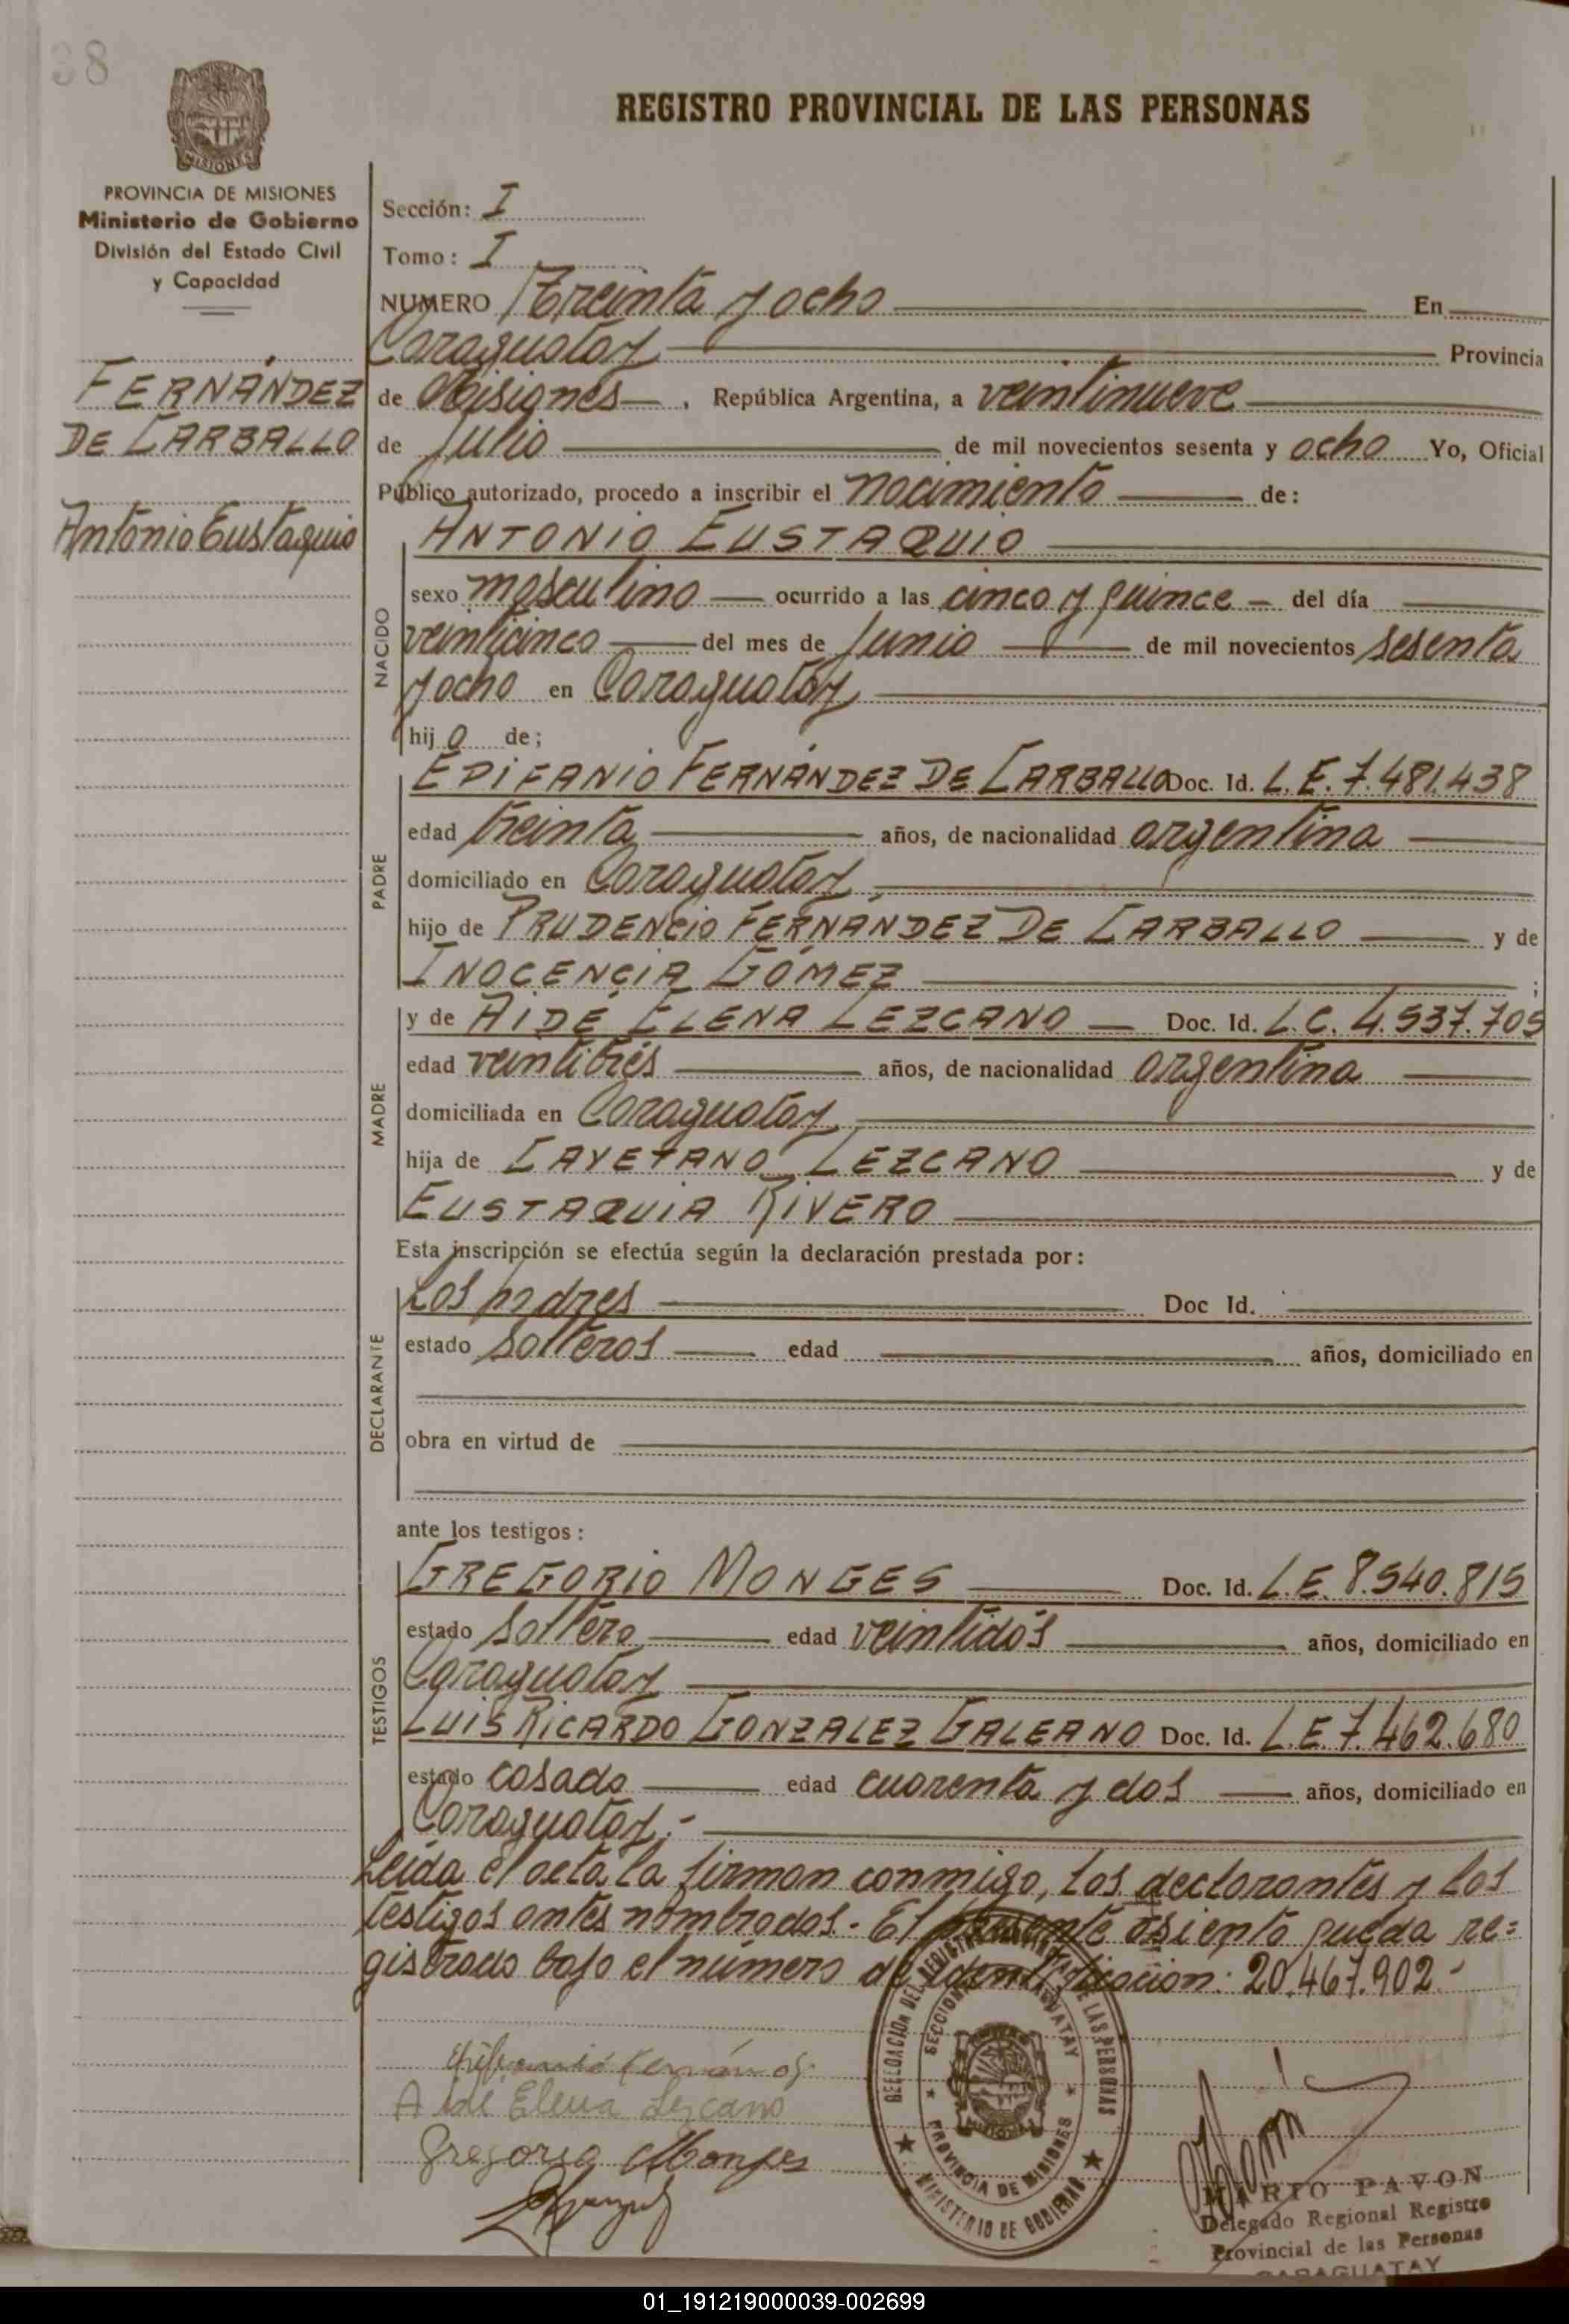 38
MISIONES
PROVINCIA DE MISIONES
Ministerio de Gobierno
División del Estado Civil
y Capacidad
FERNÁNDEZ
DE CARBALLO
Antonio Eustaquio
REGISTRO PROVINCIAL DE LAS PERSONAS
Sección: I
Tomo: I
NUMERO Treinta y ocho En
Caraguatay Provincia
de Misiones, República Argentina, a veintinueve
de Julio de mil novecientos sesenta y ocho Yo, Oficial
Público autorizado, procedo a inscribir el nacimiento de:
NACIDO
ANTONIO EUSTAQUIO
sexo masculino ocurrido a las cinco y quince del día
veinticinco del mes de Junio de mil novecientos sesenta
y ocho en Caraguatay
hijo de;
PADRE
EPIFANIO FERNÁNDEZ DE CARBALLO Doc. Id. L.E. 7.481.438
edad treinta años, de nacionalidad argentina
domiciliado en Caraguatay
hijo de PRUDENCIO FERNÁNDEZ DE CARBALLO y de
INOCENCIA GÓMEZ ;
MADRE
y de AIDÉ ELENA LEZCANO Doc. Id. L.C. 4.937.705
edad veintitrés años, de nacionalidad argentina
domiciliada en Caraguatay
hija de CAYETANO LEZCANO y de
EUSTAQUIA RIVERO
Esta inscripción se efectúa según la declaración prestada por:
DECLARANTE
Los padres Doc Id.
estado solteros edad años, domiciliado en
obra en virtud de
ante los testigos:
TESTIGOS
GREGORIO MONGES Doc. Id. L.E. 8.540.815
estado soltero edad veintidós años, domiciliado en
Caraguatay
LUIS RICARDO GONZALEZ GALEANO Doc. Id. L.E. 7.462.680
estado casado edad cuarenta y dos años, domiciliado en
Caraguatay.-
Leída el acta la firman conmigo, los declarantes y los
testigos antes nombrados.- El presente asiento queda re=
gistrado bajo el número de identificación: 20.467.902.-
DELEGACION DEL REGISTRO PROVINCIAL DE LAS PERSONAS
SECCION CARAGUATAY
PROVINCIA DE MISIONES
MINISTERIO DE GOBIERNO
Epifanio Fernández
Aidé Elena Lezcano
Gregorio Monges
MARIO PAVON
Delegado Regional Registro
Provincial de las Personas
CARAGUATAY
01_191219000039-002699